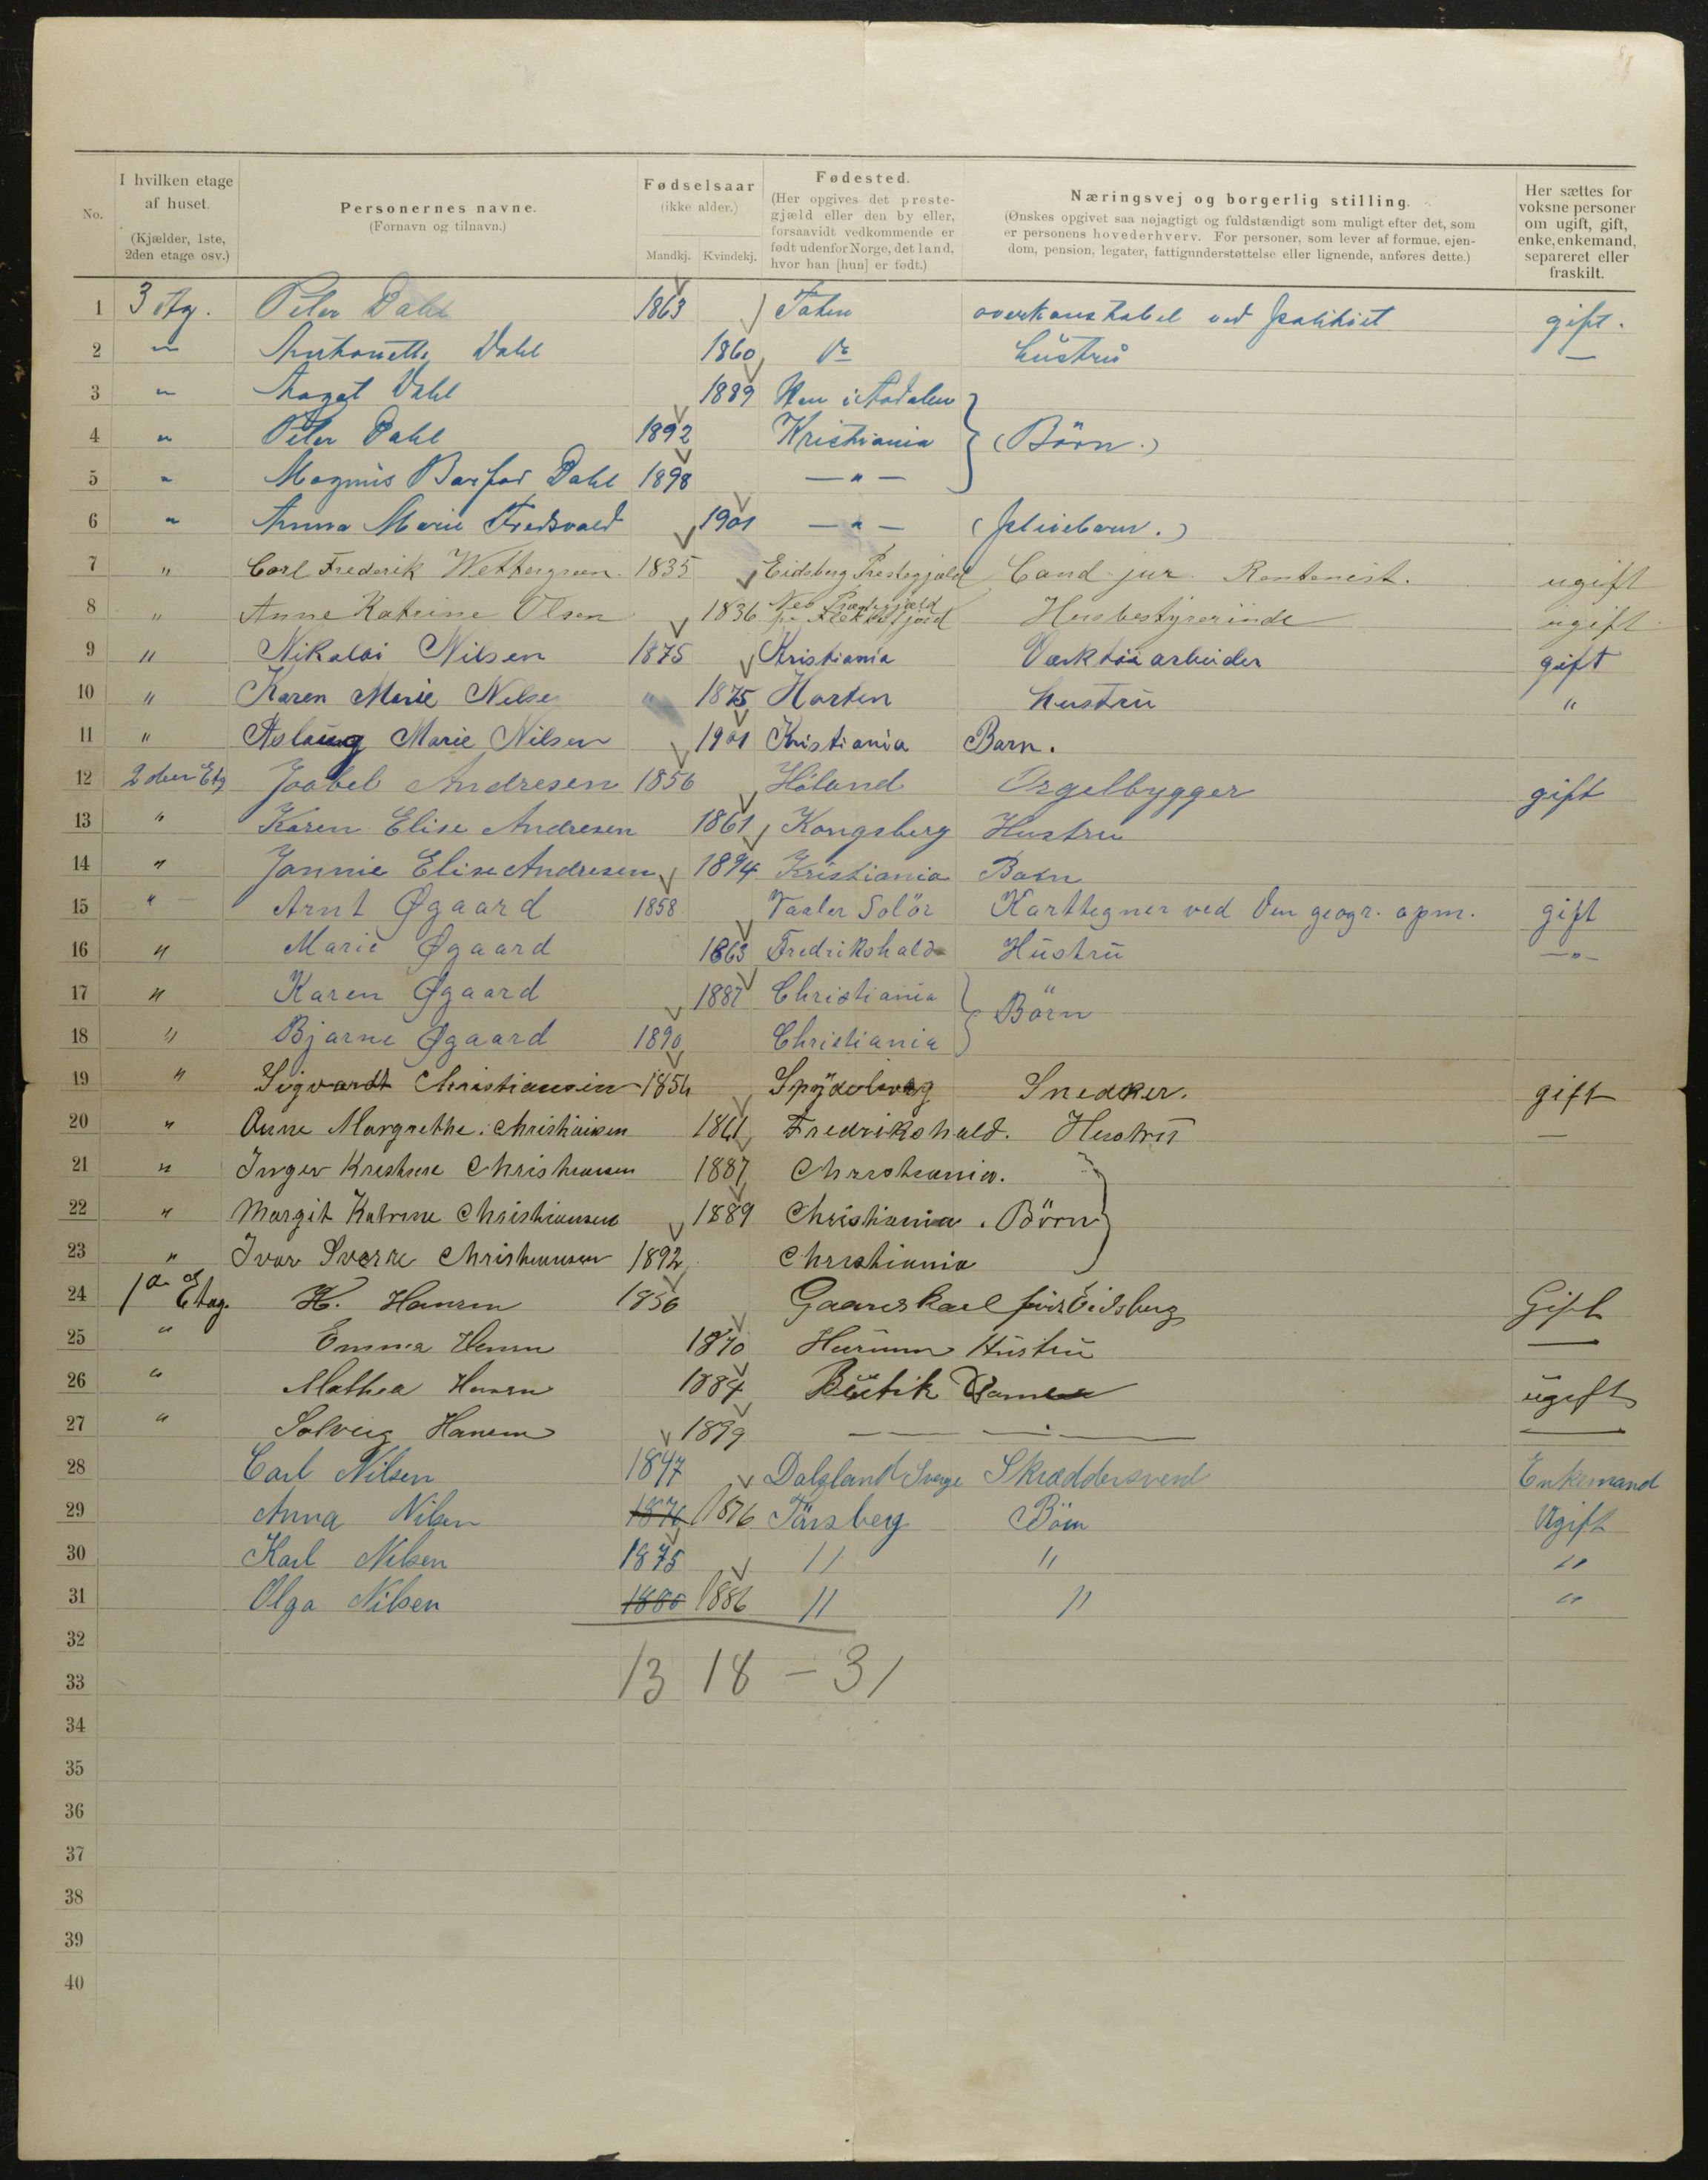 No.
I hvilken etage af huset.
(Kjælder, 1ste, 2den etage osv.)
Personernes navne.
(Fornavn og tilnavn.)
Fødselsaar
(ikke alder.)
Mandkj. Kvindekj.
Fødested.
(Her opgives det prestegjæld eller den by eller, forsaavidt vedkommende er født udenfor Norge, det land, hvor han [hun] er født.)
Næringsvej og borgerlig stilling.
(Ønskes opgivet saa nøjagtigt og fuldstændigt som muligt efter det, som er personens hovederhverv. For personer, som lever af formue, ejendom, pension, legater, fattigunderstøttelse eller lignende, anføres dette.)
Her sættes for voksne personer om ugift, gift, enke, enkemand, separeret eller fraskilt.
1 3 Etg. Peter Dahl 1863 overkonstabel ved politiet gift.
2 " Antonette Dahl 1860 Do hustru —
3 " Aagot Dahl 1889 Hen i Aadalen
4 " Peter Dahl 1892 Kristiania (Börn.)
5 " Magnus Barfod Dahl 1898 — " —
6 " Anna Marie Fredsvald 1901 — " — (pleiebarn.)
7 " Carl Frederik Wettergreen 1835 Eidsberg Prestegjæld Cand jur. Rentenist. ugift
8 " Anne Katrine Olsen 1836 Nes Præstegjæld pr Flekkefjord Husbestyrerinde ugift
9 " Nikolai Nilsen 1875 Kristiania Værktöiarbeider gift
10 " Karen Marie Nilse 1875 Horten hustru "
11 " Aslaug Marie Nilsen 1901 Kristiania Barn.
12 2den Etg Joabel Andresen 1856 Höland Orgelbygger gift
13 " Karen Elise Andresen 1861 Kongsberg Hustru
14 " Jannie Elise Andresen 1894 Kristiania Barn
15 " Arnt Øgaard 1858 Vaaler Solör Karttegner ved Den geogr. opm. gift
16 " Marie Øgaard 1863 Fredrikshald Hustru — " —
17 " Karen Øgaard 1887 Christiania
Börn
18 " Bjarne Øgaard 1890 Christiania
19 " Sigvardt Christiansen 1854 Spydeberg Snedker. gift
20 " Anne Margrethe. Christiansen 1861 Fredrikshald. Hustru —
21 " Inger Kristine Christiansen 1887 Christiania.
22 " Margit Katrine Christiansen 1889 Christiania. Börn
23 " Ivar Sverre Christiansen 1892 Christiania
24 1ste Etag. H. Hansen 1856 Gaardskarl född Eidsberg Gift
25 " Emma Hansen 1870 Hurum Hustru —
26 " Mathea Hansen 1884 Butik Dame ugift
27 " Solveig Hansen 1899 — — —
28 Carl Nilsen 1847 Dalsland Sverge Skræddersvend Enkemand
29 Anna Nilsen 1876 1876 Tönsberg Börn Ugift
30 Karl Nilsen 1875 " " "
31 Olga Nilsen 1886 1886 " " "
32
33 13 18 – 31
34
35
36
37
38
39
40